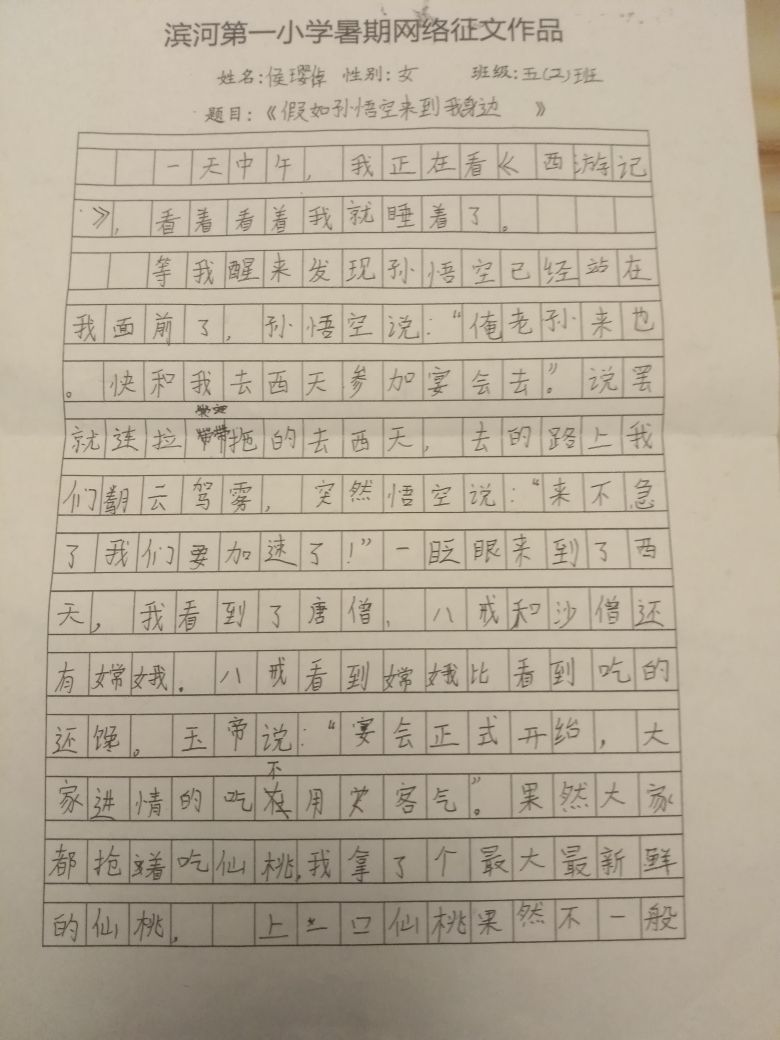 滨河第一小学暑期网络征文作品
姓名:侯璎倬 性别:女 班级:五(2)班
题目:《假如孙悟空来到我身边 》
一天中午,我正在看《西游记
》,看着看着我就睡着了。
等我醒来发现孙悟空已经站在
我面前了,孙悟空说:“俺老孙来也
。快和我去西天参加宴会去。”说罢
就连拉带拖的去西天,去的路上我
们翻云驾雾,突然悟空说:“来不急
了我们要加速了!”一眨眼来到了西
天,我看到了唐僧、八戒和沙僧还
有嫦娥。八戒看到嫦娥比看到吃的
还馋。玉帝说:“宴会正式开始,大
家进情的吃不用客气”。果然大家
都抢着吃仙桃,我拿了个最大最新鲜
的仙桃,上一口仙桃果然不一般